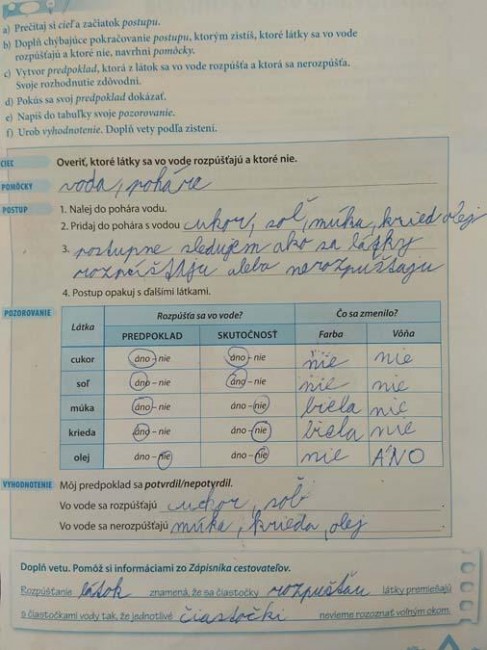 a) Prečítaj si cieľ a začiatok postupu.
b) Doplň chýbajúce pokračovanie postupu, ktorým zistíš, ktoré látky sa vo vode
rozpúšťajú a ktoré nie, navrhni pomôcky.
c) Vytvor predpoklad, ktorá z látok sa vo vode rozpúšťa a ktorá sa nerozpúšťa.
Svoje rozhodnutie zdôvodni.
d) Pokús sa svoj predpoklad dokázať.
e) Napíš do tabuľky svoje pozorovanie.
f) Urob vyhodnotenie. Doplň vety podľa zistení.
CIEĽ Overiť, ktoré látky sa vo vode rozpúšťajú a ktoré nie.
POMÔCKY voda, poháre
POSTUP 1. Nalej do pohára vodu.
2. Pridaj do pohára s vodou cukor, soľ, múka, kried olej
3. postupne sledujem ako sa látky
rozpúšťaju alebo nerozpúšťaju
4. Postup opakuj s ďalšími látkami.
POZOROVANIE Látka Rozpúšťa sa vo vode? Čo sa zmenilo?
PREDPOKLAD SKUTOČNOSŤ Farba Vôňa
cukor áno – nie áno – nie nie nie
soľ áno – nie áno – nie nie nie
múka áno – nie áno – nie biela nie
krieda áno – nie áno – nie biela nie
olej áno – nie áno – nie nie ÁNO
VYHODNOTENIE Môj predpoklad sa potvrdil/nepotvrdil.
Vo vode sa rozpúšťajú cukor, soľ.
Vo vode sa nerozpúšťajú múka, krieda, olej.
Doplň vetu. Pomôž si informáciami zo Zápisníka cestovateľov.
Rozpúšťanie látok znamená, že sa čiastočky rozpúšťau látky premiešajú
s čiastočkami vody tak, že jednotlivé čiastočki nevieme rozoznať voľným okom.